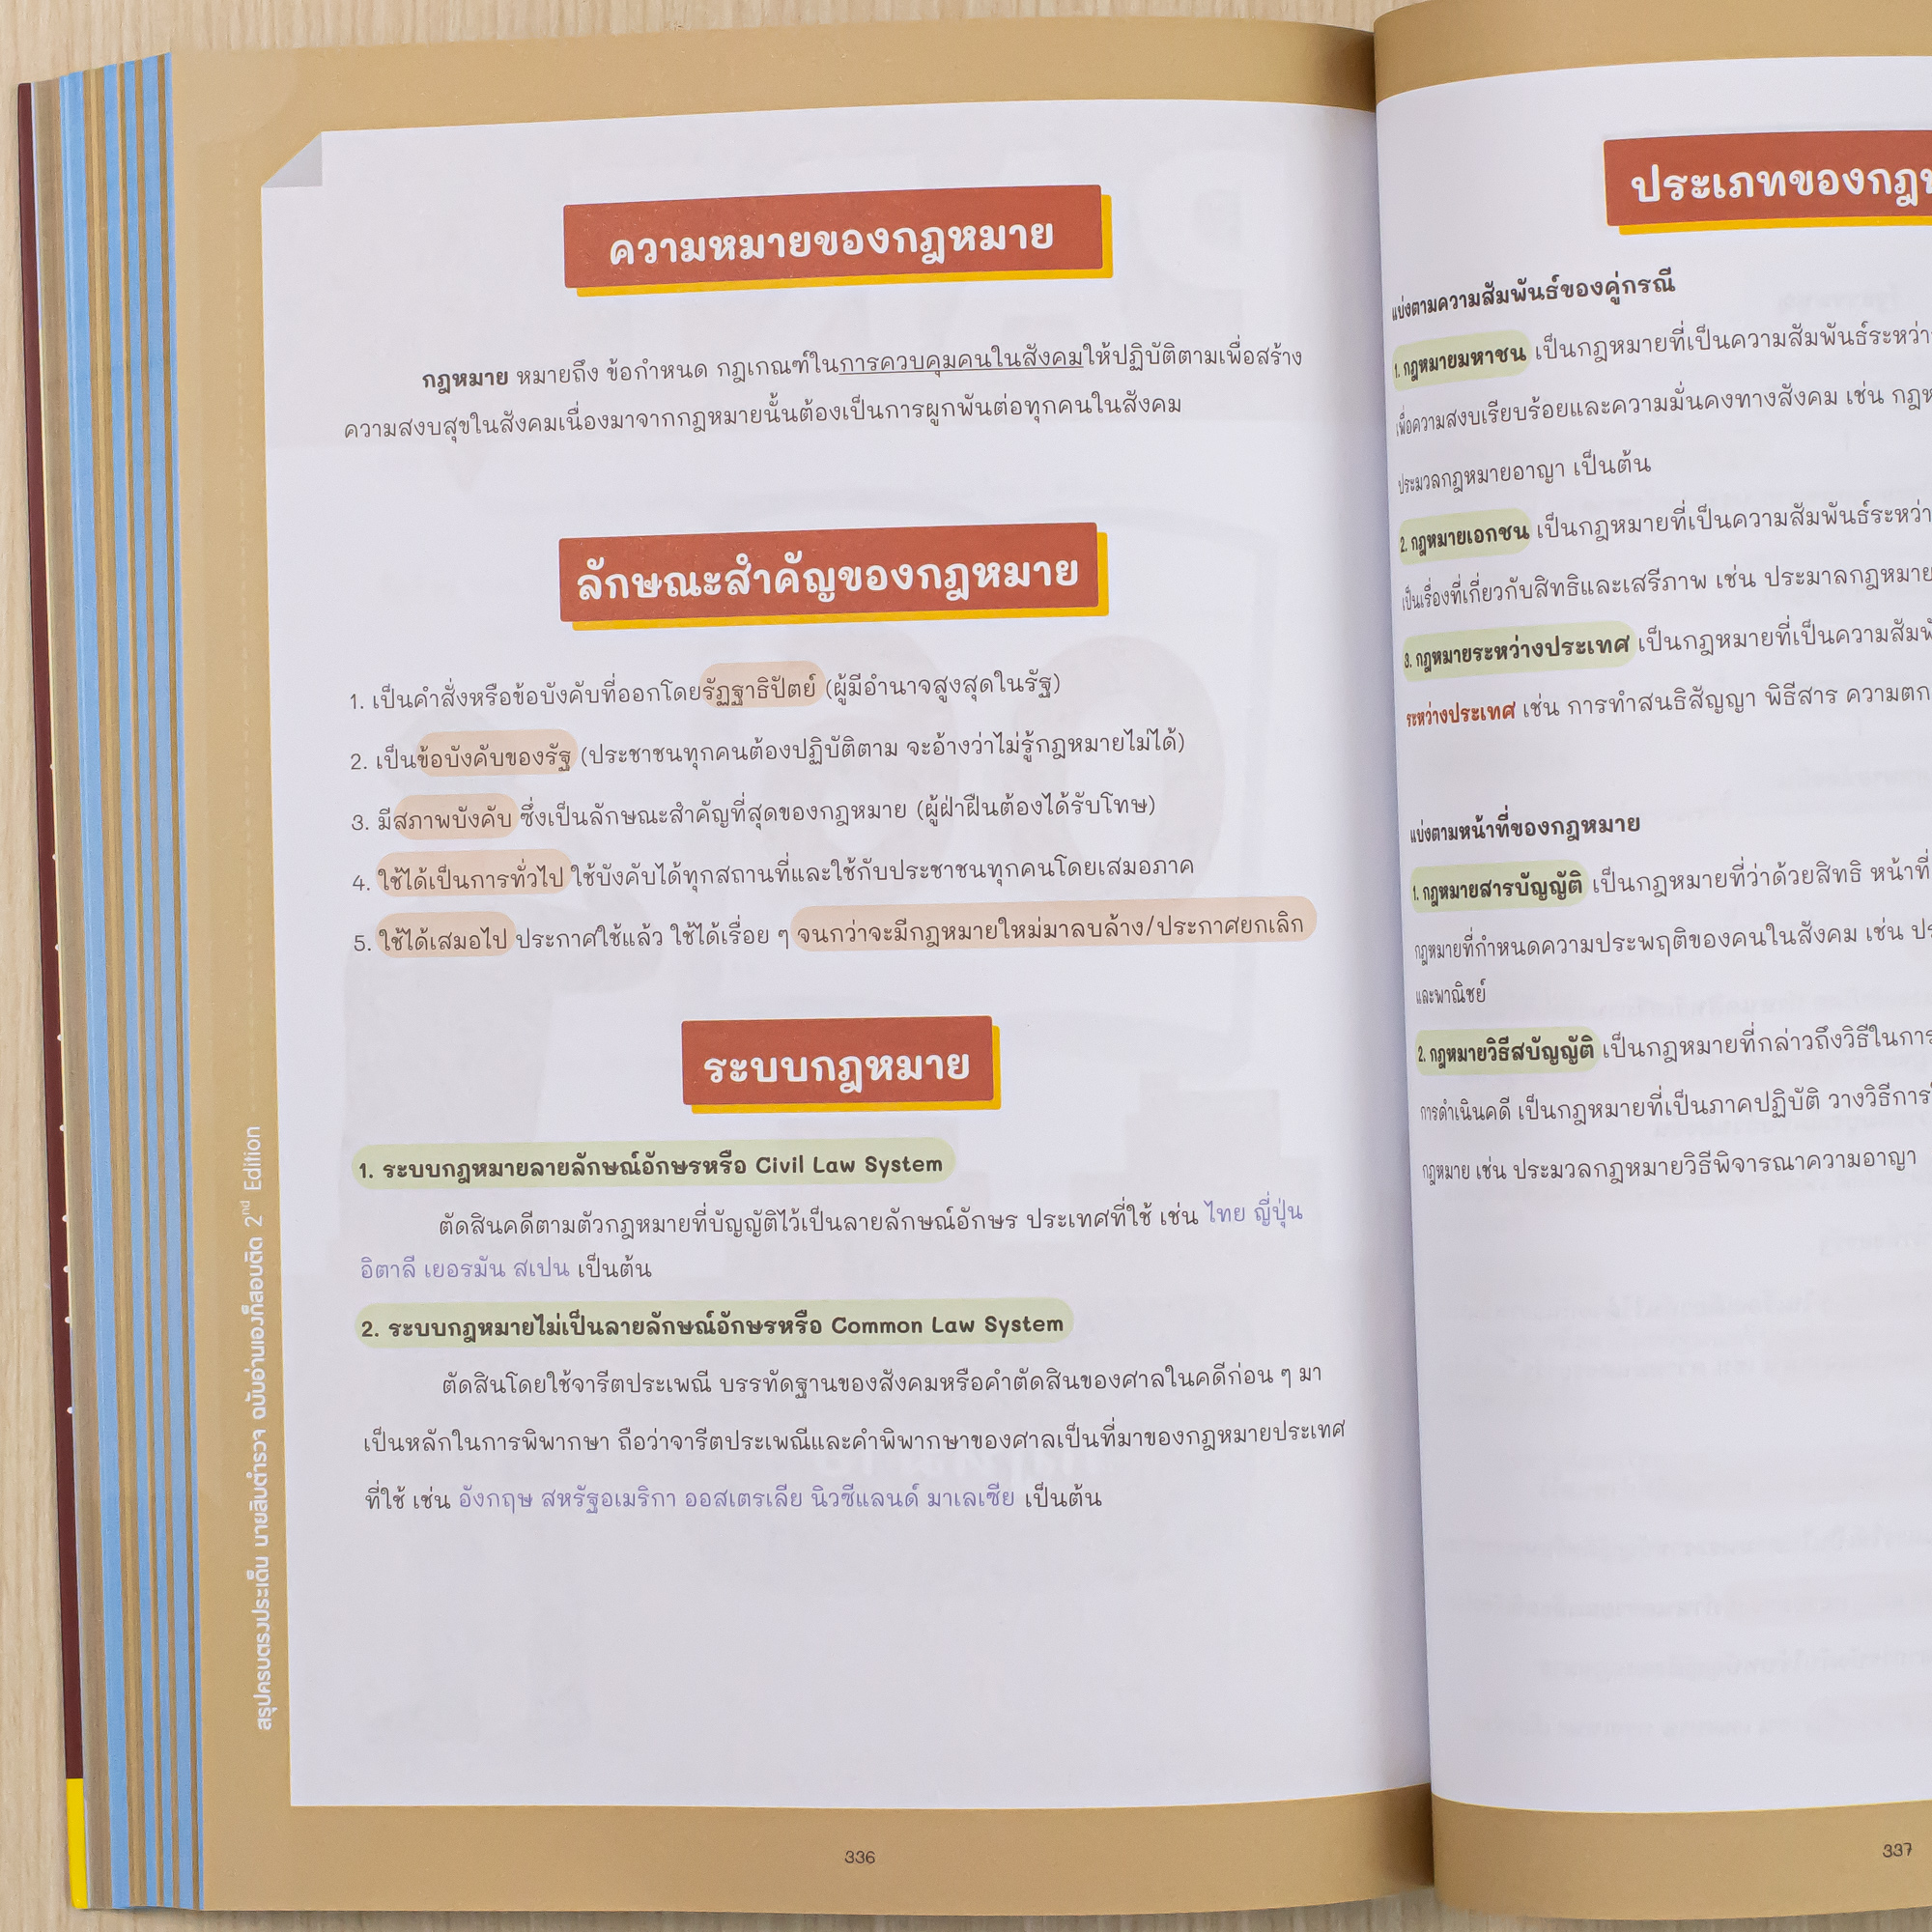 ความหมายของกฎหมาย
กฎหมาย หมายถึง ข้อกำหนด กฎเกณฑ์ในการควบคุมคนในสังคมให้ปฏิบัติตามเพื่อสร้าง
ความสงบสุขในสังคมเนื่องมาจากกฎหมายนั้นต้องเป็นการผูกพันต่อทุกคนในสังคม
ลักษณะสำคัญของกฎหมาย
1. เป็นคำสั่งหรือข้อบังคับที่ออกโดยรัฏฐาธิปัตย์ (ผู้มีอำนาจสูงสุดในรัฐ)
2. เป็นข้อบังคับของรัฐ (ประชาชนทุกคนต้องปฏิบัติตาม จะอ้างว่าไม่รู้กฎหมายไม่ได้)
3. มีสภาพบังคับ ซึ่งเป็นลักษณะสำคัญที่สุดของกฎหมาย (ผู้ฝ่าฝืนต้องได้รับโทษ)
4. ใช้ได้เป็นการทั่วไป ใช้บังคับได้ทุกสถานที่และใช้กับประชาชนทุกคนโดยเสมอภาค
5. ใช้ได้เสมอไป ประกาศใช้แล้ว ใช้ได้เรื่อย ๆ จนกว่าจะมีกฎหมายใหม่มาลบล้าง/ประกาศยกเลิก
ระบบกฎหมาย
1. ระบบกฎหมายลายลักษณ์อักษรหรือ Civil Law System
ตัดสินคดีตามตัวกฎหมายที่บัญญัติไว้เป็นลายลักษณ์อักษร ประเทศที่ใช้ เช่น ไทย ญี่ปุ่น
อิตาลี เยอรมัน สเปน เป็นต้น
2. ระบบกฎหมายไม่เป็นลายลักษณ์อักษรหรือ Common Law System
ตัดสินโดยใช้จารีตประเพณี บรรทัดฐานของสังคมหรือคำตัดสินของศาลในคดีก่อน ๆ มา
เป็นหลักในการพิพากษา ถือว่าจารีตประเพณีและคำพิพากษาของศาลเป็นที่มาของกฎหมายประเทศ
ที่ใช้ เช่น อังกฤษ สหรัฐอเมริกา ออสเตรเลีย นิวซีแลนด์ มาเลเซีย เป็นต้น
สรุปครบตรงประเด็น นายสิบตำรวจ ฉบับอ่านเองก็สอบติด 2nd Edition
336
ประเภทของกฎ
แบ่งตามความสัมพันธ์ของคู่กรณี
1. กฎหมายมหาชน เป็นกฎหมายที่เป็นความสัมพันธ์ระหว่า
เพื่อความสงบเรียบร้อยและความมั่นคงทางสังคม เช่น กฎห
ประมวลกฎหมายอาญา เป็นต้น
2. กฎหมายเอกชน เป็นกฎหมายที่เป็นความสัมพันธ์ระหว่า
เป็นเรื่องที่เกี่ยวกับสิทธิและเสรีภาพ เช่น ประมาลกฎหมาย
3. กฎหมายระหว่างประเทศ เป็นกฎหมายที่เป็นความสัมพั
ระหว่างประเทศ เช่น การทำสนธิสัญญา พิธีสาร ความตก
แบ่งตามหน้าที่ของกฎหมาย
1. กฎหมายสารบัญญัติ เป็นกฎหมายที่ว่าด้วยสิทธิ หน้าที่
กฎหมายที่กำหนดความประพฤติของคนในสังคม เช่น ปร
และพาณิชย์
2. กฎหมายวิธีสบัญญัติ เป็นกฎหมายที่กล่าวถึงวิธีในการ
การดำเนินคดี เป็นกฎหมายที่เป็นภาคปฏิบัติ วางวิธีการ
กฎหมาย เช่น ประมวลกฎหมายวิธีพิจารณาความอาญา
337